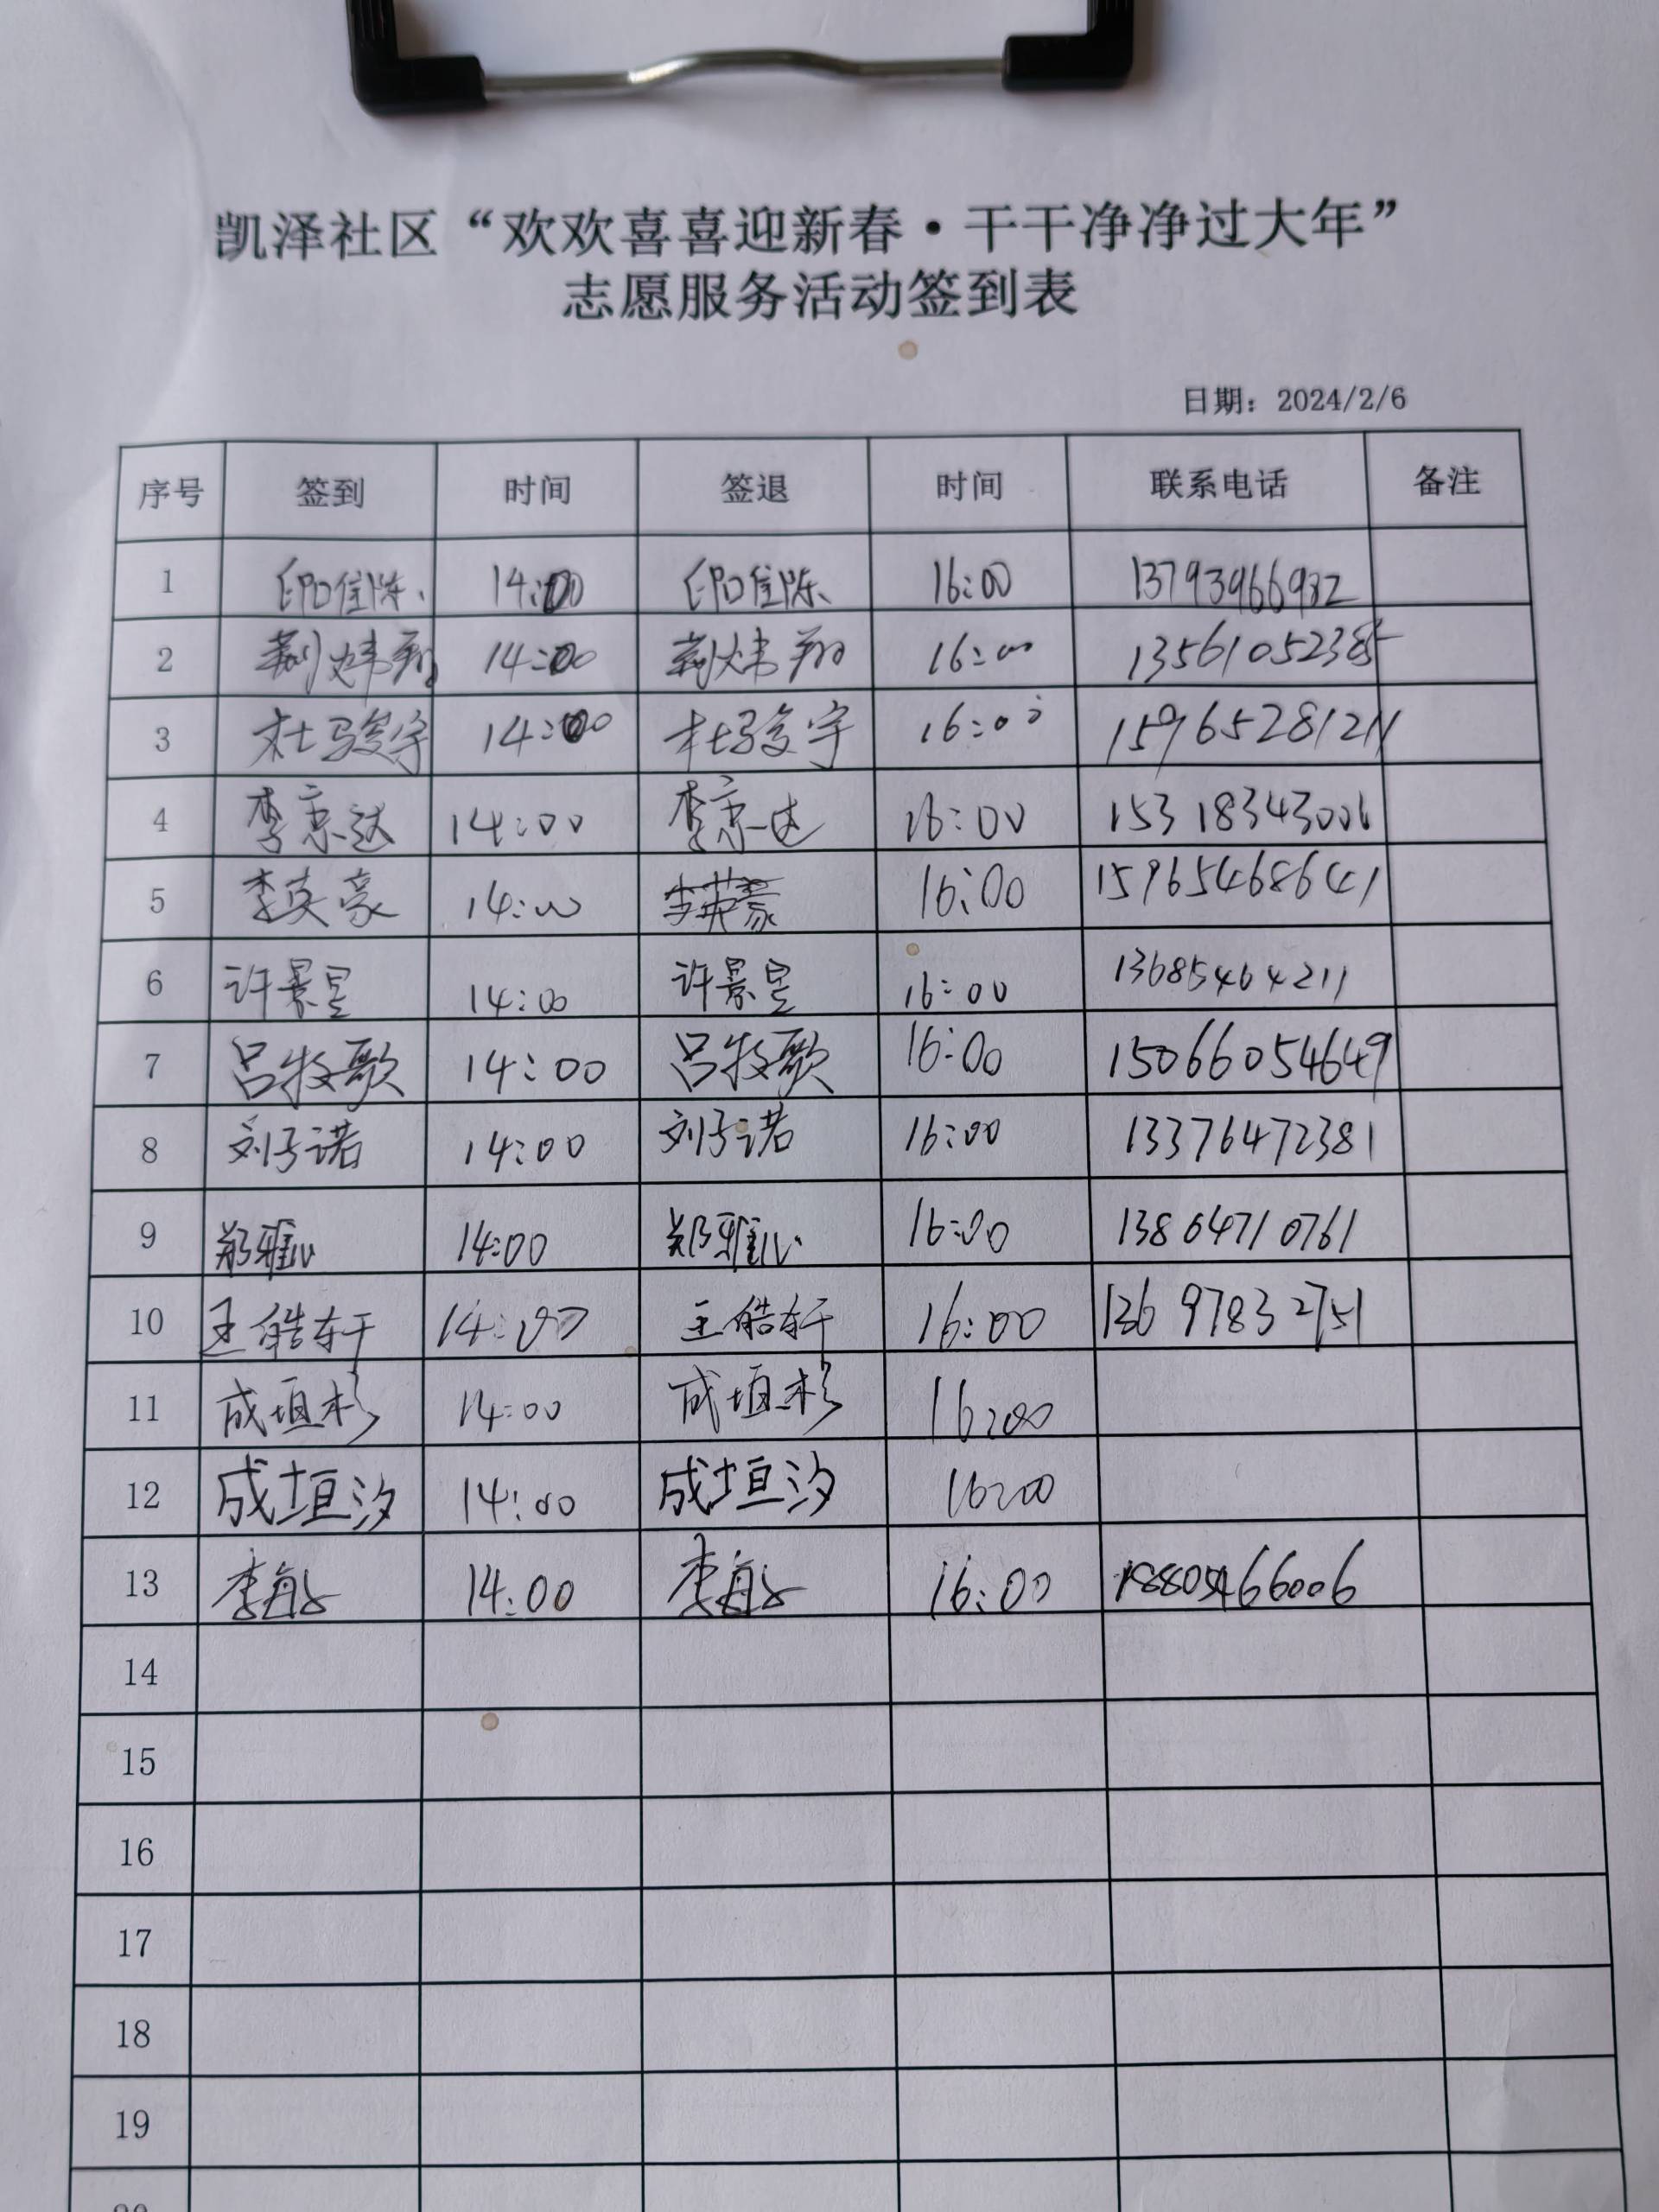 凯泽社区“欢欢喜喜迎新春·干干净净过大年”
志愿服务活动签到表
日期：2024/2/6
序号 签到 时间 签退 时间 联系电话 备注
1 印佳陈 14:00 印佳陈 16:00 13793966932
2 荆炜翔 14:00 荆炜翔 16:00 13561052385
3 杜骏宇 14:00 杜骏宇 16:00 15965281211
4 李京达 14:00 李京达 16:00 15318343006
5 李英豪 14:00 李英豪 16:00 15965468641
6 许景昱 14:00 许景昱 16:00 13685464211
7 吕牧歌 14:00 吕牧歌 16:00 15066054649
8 刘子诺 14:00 刘子诺 16:00 13376472381
9 郑雅心 14:00 郑雅心 16:00 13864710761
10 王皓轩 14:00 王皓轩 16:00 13697832751
11 成垣杉 14:00 成垣杉 16:00
12 成垣汐 14:00 成垣汐 16:00
13 李 14:00 李 16:00 18805466006
14
15
16
17
18
19